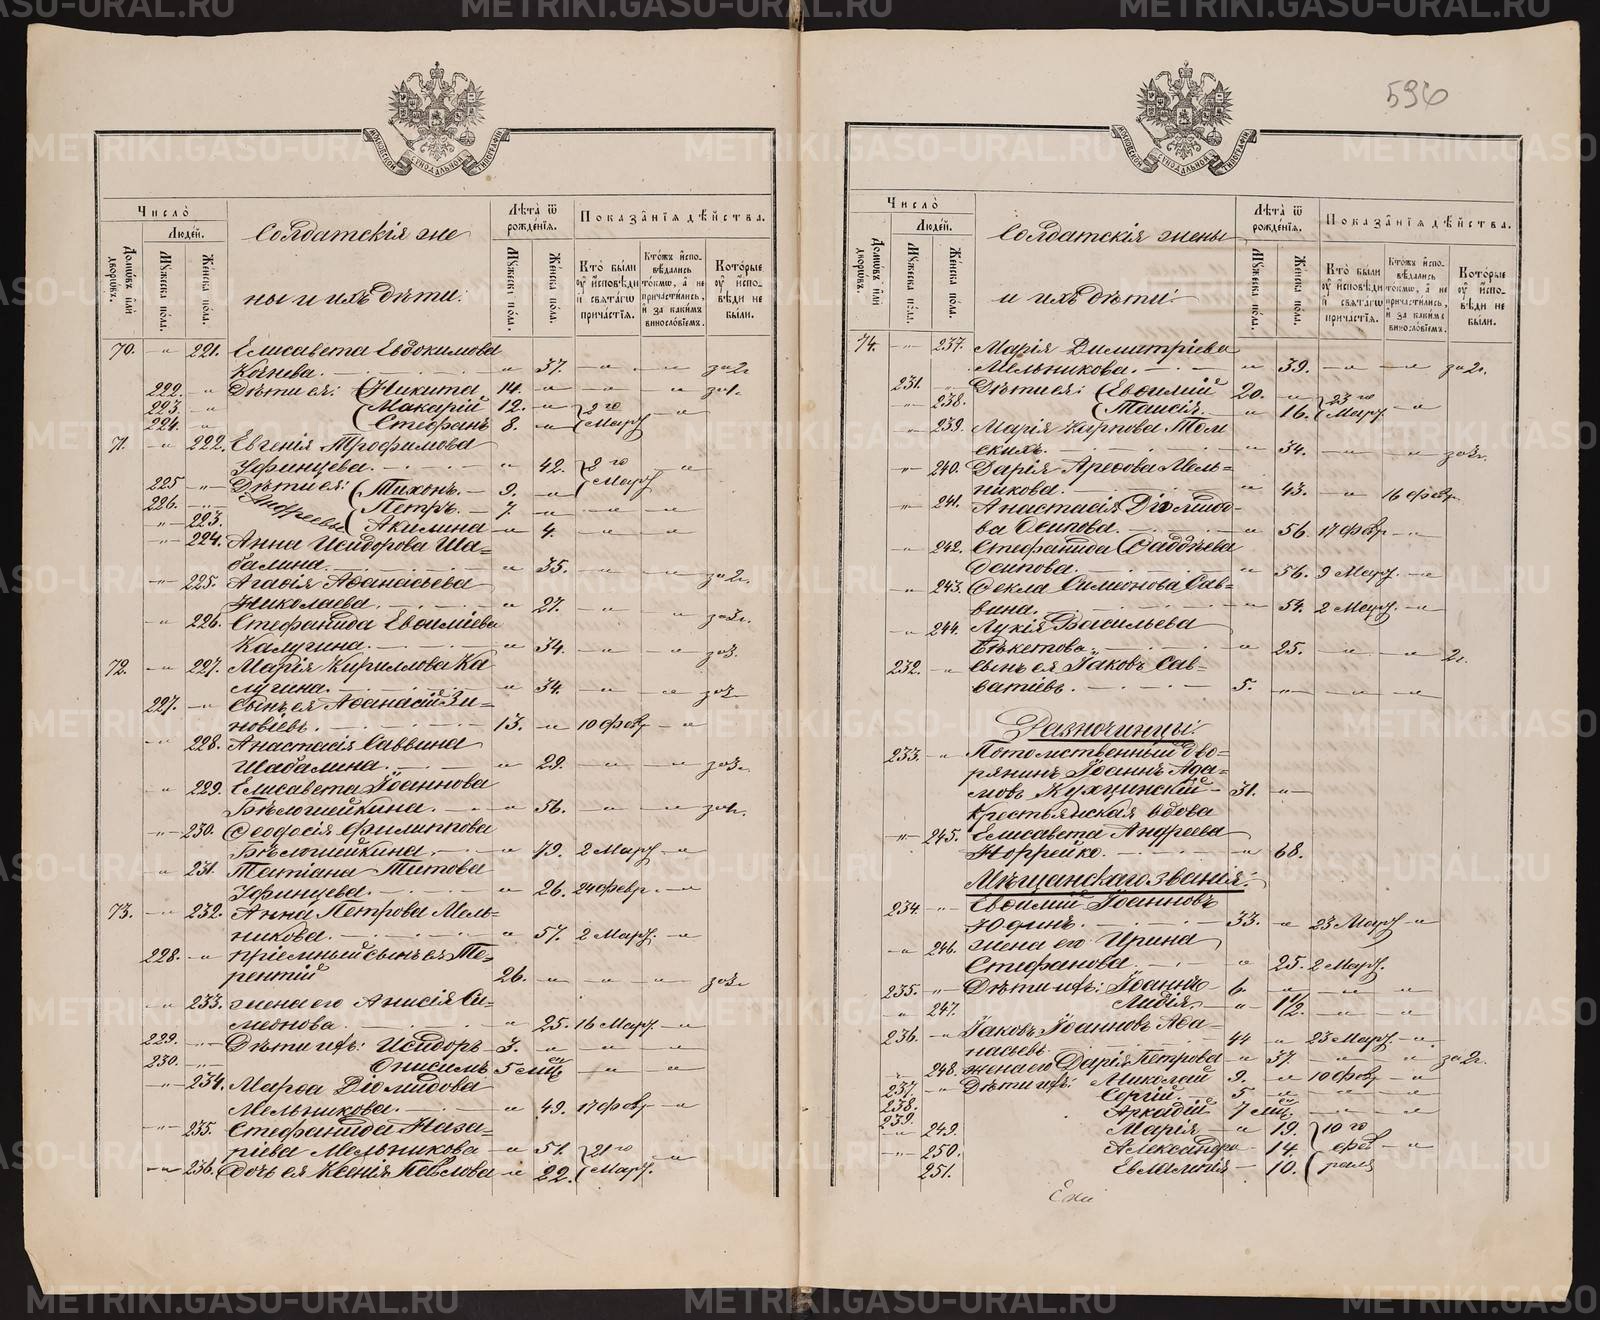 596
Число̀
Людѐй.
Домѡвъ или дворѡвъ.
Мꙋжеска пола.
Женска пола.
Солдатскія же
ны и ихъ дѣти:
Лѣта ѿ рождѐнїѧ.
Мꙋжеска пола.
Женска пола.
Показа̂нїѧ дѣйства.
Кто были оу исповѣди и свѧтагѡ причастїѧ.
Ктожъ исповѣдались токмѡ, а не причастились, и за какимъ винословїемъ.
Которые оу исповѣди не были.
70. -"- 221. Елисавета Евдокимова
Кознева. " 37. -"- -"- за 2г
222. " Дѣти ея: Никита 14. -"- -"- " за 1г.
223. " Макарій 12. -"- 2го -"-
224. " Стефанъ 8. -"- Марта
71. -"- 222. Евгенія Трофимова
Уфинцева. " 42. 2го -"-
225 -"- Дѣти ея: Тихонъ. 9. -"- Марта
226. -"- Андреевы Петръ. 7 -"- -"- -"-
-"- 223. Акилина -"- 4. -"- -"-
-"- 224. Анна Исидорова Ша=
балина. " 35. -"- -"- за 2г.
-"- 225. Агафія Афанасьева
Николаева. " 27. -"- -"- за 2г.
-"- 226. Стефанида Евфиміева
Калугина. " 34. -"- -"- за 3.
72. -"- 227. Марія Кириллова Ка
лугина. " 34. -"- -"- за 3
227. -"- Сынъ ея Афанасій Зи=
новіевъ. 13. -"- 10 февр -"-
-"- 228. Анастасія Саввина
Шабалина. " 29. -"- -"- за 3г.
" 229. Елисавета Іоаннова
Бѣлошейкина. " 56. -"- -"- за 1г.
-"- 230. Ѳеодосія Филиппова
Бѣлошейкина. " 49. 2 Марта -"-
" 231. Татіана Титова
Уфинцева. " 26. 24 февр. -"-
73. -"- 232. Анна Петрова Мель=
никова. " 57. 2 Марта. -"-
228. -"- пріемный сынъ ея Те=
рентій 26. -"- -"- -"- за 3г.
-"- 233. жена его Анисія Си=
меонова " 25. 16 Марта. -"-
229. -"- Дѣти ихъ: Исидоръ 3. " " "
230. -"- Онисимъ 5 мѣс. " -"- -"-
-"- 234. Марфа Діомидова
Мельникова. " 49. 17 февр -"-
-"- 235. Стефанида Наза=
ріева Мельникова -"- 51. 21го -"-
-"- 236. Дочь ея Ксенія Павлова -"- 22. Марта.
Число̀
Людѐй.
Домѡвъ или дворѡвъ.
Мꙋжеска пола.
Женска пола.
Солдатскія жены
и ихъ дѣти:
Лѣта ѿ рождѐнїѧ.
Мꙋжеска пола.
Женска пола.
Показа̂нїѧ дѣйства.
Кто были оу исповѣди и свѧтагѡ причастїѧ.
Ктожъ исповѣдались токмѡ, а не причастились, и за какимъ винословїемъ.
Которые оу исповѣди не были.
74. -"- 237. Марія Димитріева
Мельникова. " 39. -"- -"- за 2г.
231. -"- Дѣти ея: Евфимій 20. -"- 23го
-"- 238. Таисія. " 16. Марта -"-
" 239. Марія Карпова Том
скихъ. " 34. -"- -"- за 3г.
-"- 240. Дарія Арефова Мель=
никова. " 43. -"- 16 февр.
-"- 241. Анастасія Діомидо=
ва Осипова. " 56. 17 февр -"-
-"- 242. Стефанида Фаддѣева
Осипова. " 56. 9 Марта. -"-
" 243. Ѳекла Симеонова Сав=
вина. " 54. 2 Марта. -"-
-"- 244. Лукія Васильева
Бѣкетова. " 25. -"- -"- 2г.
232. " Сынъ ея Іаковъ Сав=
ватіевъ. 5. -"- -"- -"-
Разночинцы:
233. -"- Потомственный дво=
рянинъ Іоаннъ Ада=
мовъ Кухцинскій 31. -"-
Крестьянская вдова
-"- 245. Елисавета Андреева
Норрейко. " 68.
Мѣщанскаго званія:
234. -"- Евфимій Іоанновъ
Юдинъ. 33. " 23 Марта -"-
" 246. жена его Ирина
Стефанова. " 25. 2 Марта.
235. -"- Дѣти ихъ: Іоаннъ 6. " " "
" 247. Лидія. " 1½. -"- -"-
236. -"- Іаковъ Іоанновъ Афа=
насьевъ. 44 -"- 23 Марта. -"-
" 248. жена его Дарія Петрова -"- 37 " " за 2г.
237. -"- Дѣти ихъ: Николай 9. -"- 10 февр -"-
238. " Сергій. 5 -"- -"- -"-
239. Аркадій 7 мѣс. -"- -"-
" 249. Марія -"- 19. 10го
-"- 250. Александра 14 фев -"-
251. Евлампія 10. раля